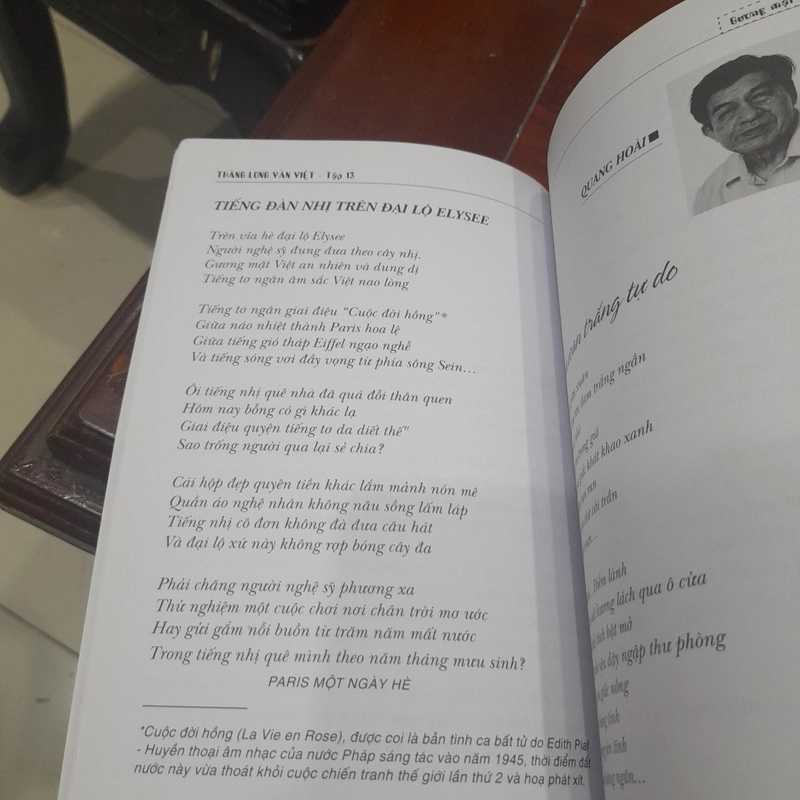 THĂNG LONG VĂN VIỆT - Tập 13
TIẾNG ĐÀN NHỊ TRÊN ĐẠI LỘ ELYSEE
Trên vỉa hè đại lộ Elysee
Người nghệ sỹ đung đưa theo cây nhị.
Gương mặt Việt an nhiên và dung dị
Tiếng tơ ngân âm sắc Việt nao lòng
Tiếng tơ ngân giai điệu "Cuộc đời hồng"*
Giữa náo nhiệt thành Paris hoa lệ
Giữa tiếng gió tháp Eiffel ngạo nghễ
Và tiếng sóng vơi đầy vọng từ phía sông Sein...
Ôi tiếng nhị quê nhà đã quá đỗi thân quen
Hôm nay bỗng có gì khác lạ
Giai điệu quyện tiếng tơ da diết thế"
Sao trống người qua lại sẻ chia?
Cái hộp đẹp quyên tiền khác lắm mảnh nón mê
Quần áo nghệ nhân không nâu sồng lấm láp
Tiếng nhị cô đơn không đà đưa câu hát
Và đại lộ xứ này không rợp bóng cây đa
Phải chăng người nghệ sỹ phương xa
Thử nghiệm một cuộc chơi nơi chân trời mơ ước
Hay gửi gắm nỗi buồn từ trăm năm mất nước
Trong tiếng nhị quê mình theo năm tháng mưu sinh?
PARIS MỘT NGÀY HÈ
*Cuộc đời hồng (La Vie en Rose), được coi là bản tình ca bất tử do Edith Piaf
- Huyền thoại âm nhạc của nước Pháp sáng tác vào năm 1945, thời điểm đất
nước này vừa thoát khỏi cuộc chiến tranh thế giới lần thứ 2 và hoạ phát xít.
Gương mặt
QUANG HOÀI
trắng tự do
xuân
đám trắng ngần
gió
khát khao xanh
cõi trần
Điềm lành
hương lách qua ô cửa
tinh bật mở
dây ngập thư phòng
giấc nồng
tình
tình
ngần...